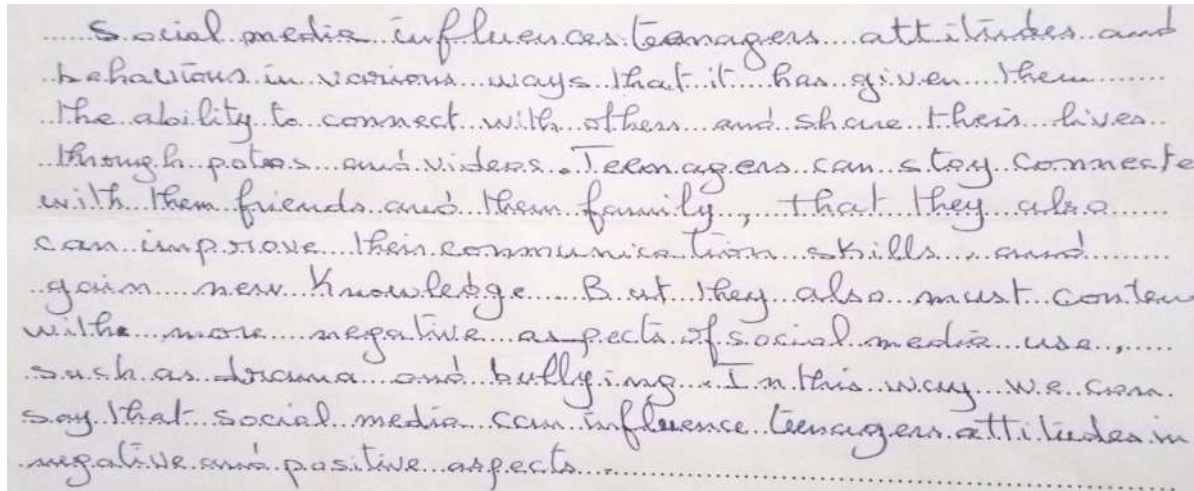 Social media influences teenagers attitudes and
behaviours in various ways that it has given them
the ability to connect with others and share their lives
through potos and videos. Teenagers can stay connecte
with them friends and them family, that they also
can improve their communication skills, and
gain new knowledge. But they also must conten
withe more negative aspects of social media use,
such as drama and bullying. In this way we can
say that social media can influence teenagers attitudes in
negative and positive aspects.